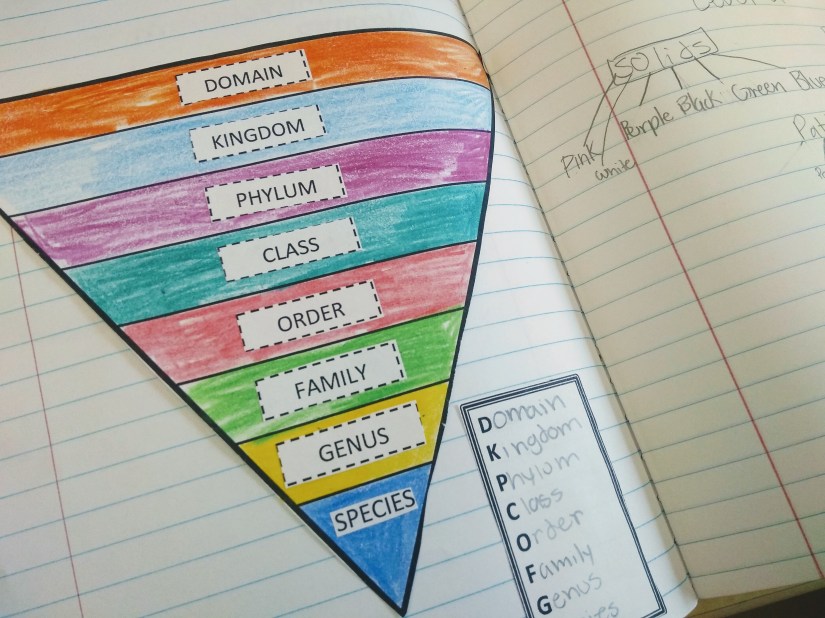 DOMAIN
KINGDOM
PHYLUM
CLASS
ORDER
FAMILY
GENUS
SPECIES
Domain
Kingdom
Phylum
Class
Order
Family
Genus
solids
Pink
white
Purple Black Green Blue